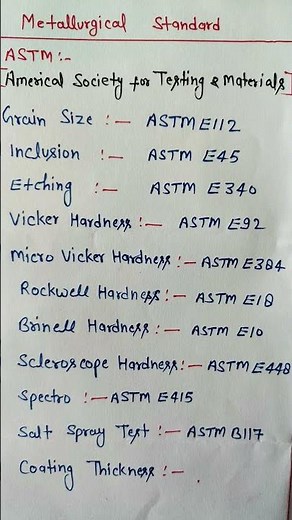 Metallurgical Standard
ASTM :-
[Americal Society for Testing & Materials]
Grain Size :- ASTM E112
Inclusion :- ASTM E45
Etching :- ASTM E340
Vicker Hardness :- ASTM E92
Micro Vicker Hardness :- ASTM E384
Rockwell Hardness :- ASTM E18
Brinell Hardness :- ASTM E10
Scleroscope Hardness :- ASTM E448
Spectro :- ASTM E415
Salt Spray Test :- ASTM B117
Coating Thickness :-